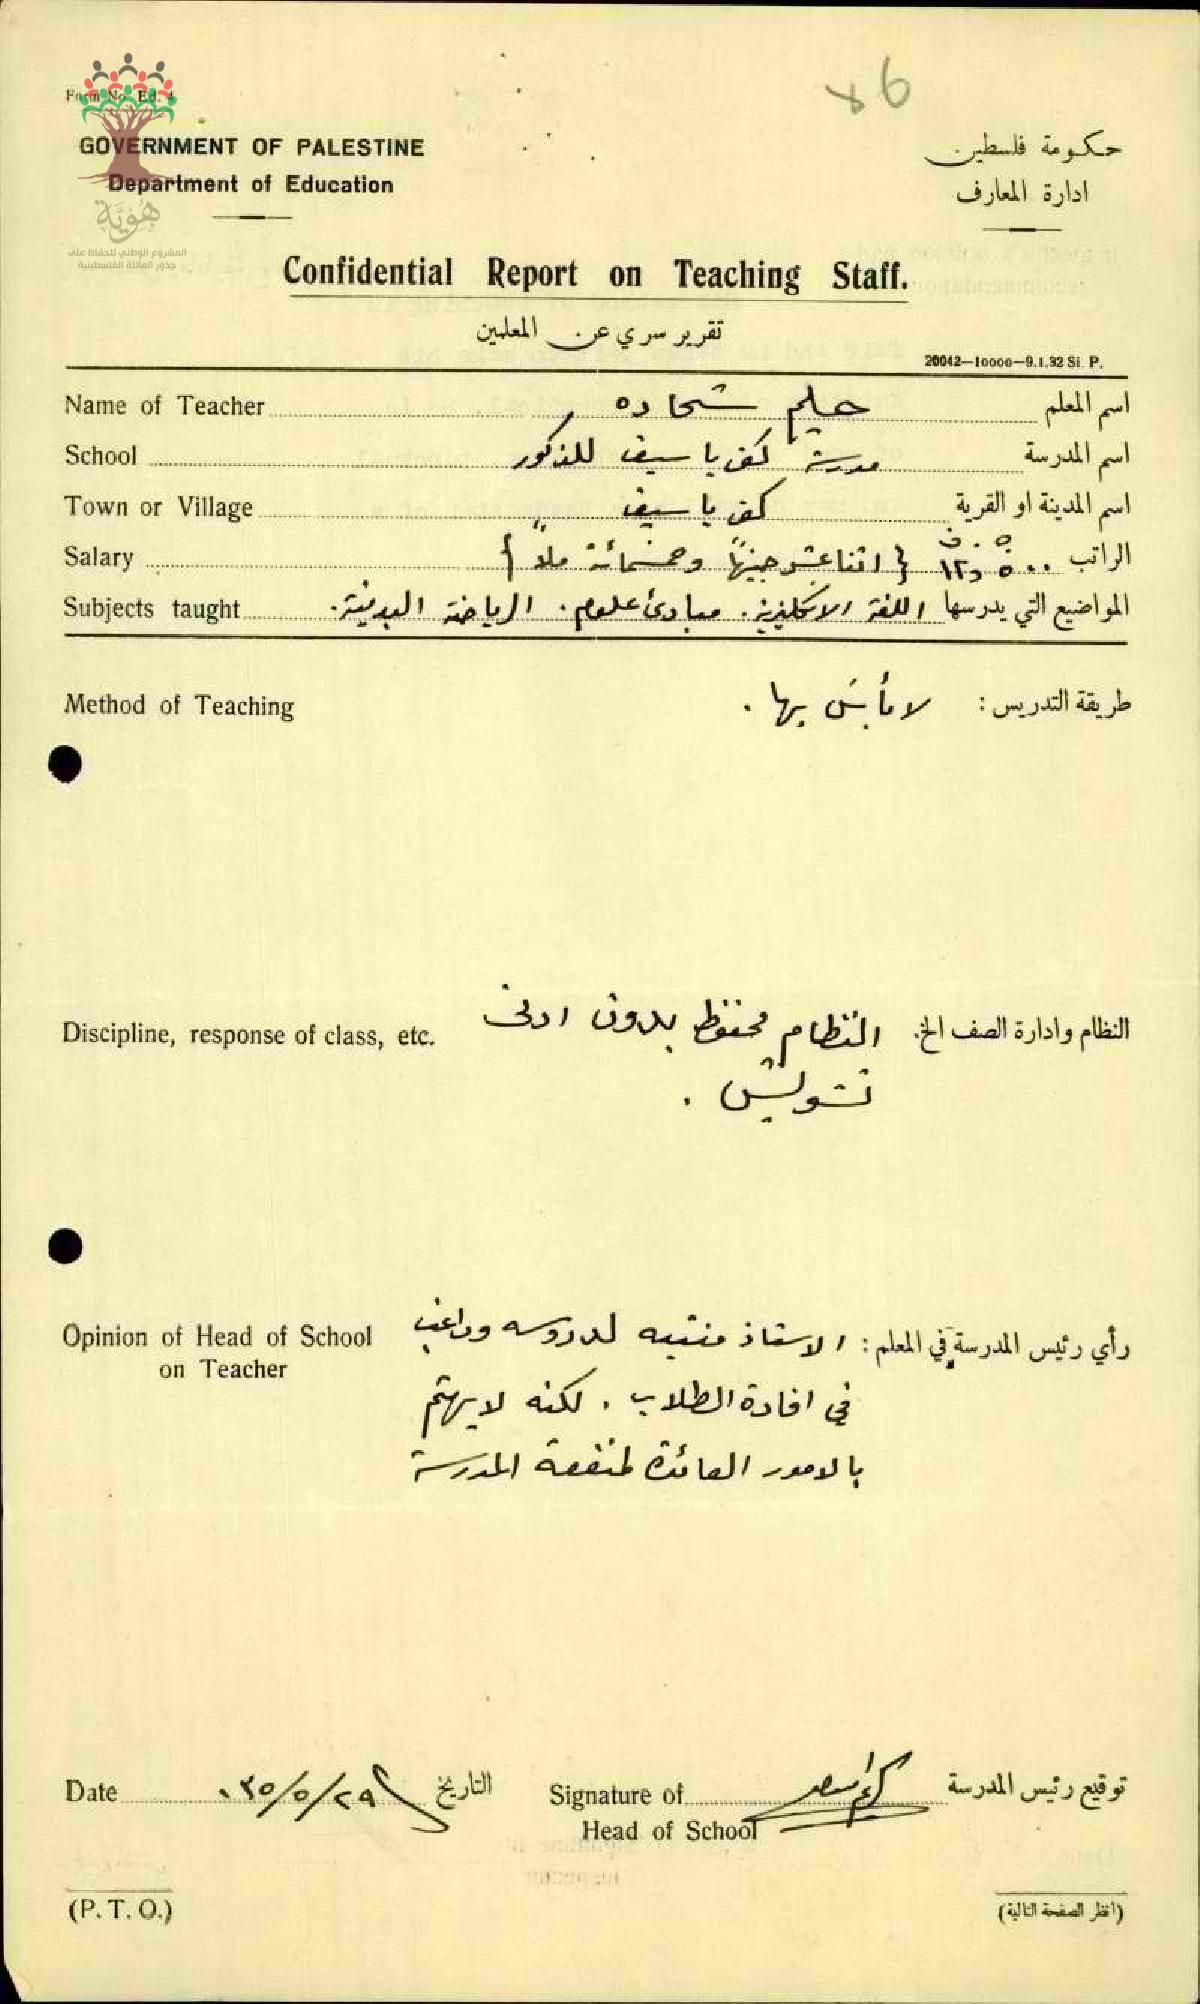 Form No. Ed. 4
GOVERNMENT OF PALESTINE
Department of Education
حكومة فلسطين
ادارة المعارف
هُويَّة
المشروع الوطني للحفاظ على
جذور العائلة الفلسطينية
Confidential Report on Teaching Staff.
تقرير سري عن المعلمين
20042—10000—9.1.32 Si. P.
Name of Teacher حليم شحاده اسم المعلم
School مدرسة كفر ياسيف للذكور اسم المدرسة
Town or Village كفر ياسيف اسم المدينة او القرية
Salary الراتب ١٢٫٥٠٠ { اثنا عشر جنيهاً وخمسمائة ملاً }
Subjects taught المواضيع التي يدرسها اللغة الانكليزية. مبادئ علوم. الرياضة البدنية.
Method of Teaching طريقة التدريس : لا بأس بها .
Discipline, response of class, etc. النظام وادارة الصف الخ. النظام محفوظ بدون ادنى
تشويش .
Opinion of Head of School
on Teacher
رأي رئيس المدرسة في المعلم : الاستاذ منتبه لدروسه وراغب
في افادة الطلاب . لكنه لا يهتم
بالامور العائدة لمنفعة المدرسة
Date ٢٩/٥/٣٥ التاريخ
Signature of توقيع رئيس المدرسة
Head of School
(P. T. O.)
(انظر الصفحة التالية)